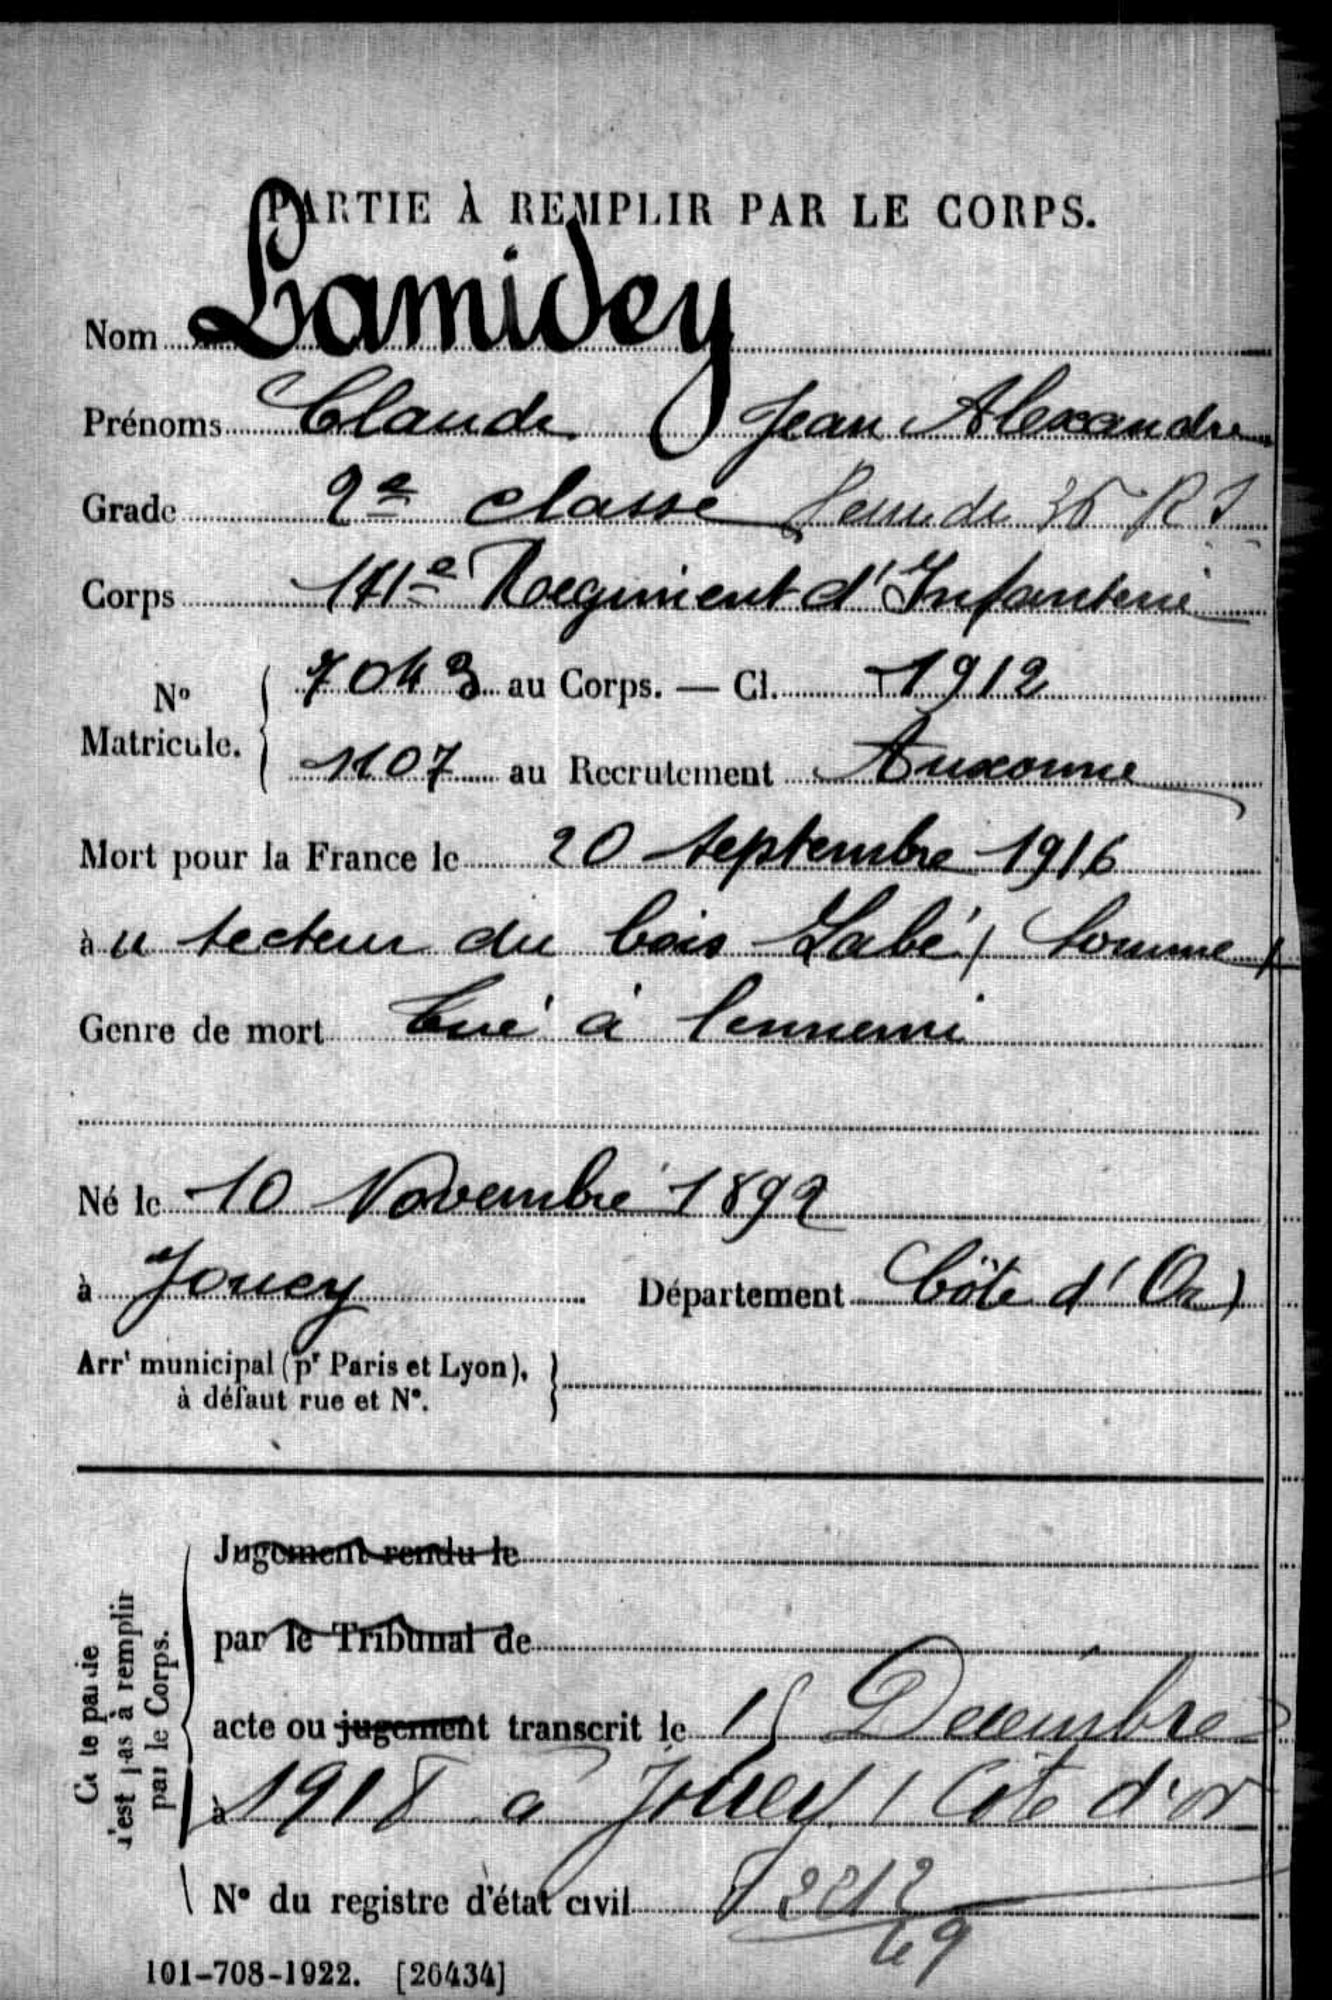 PARTIE À REMPLIR PAR LE CORPS.
Nom Lamidey
Prénoms Claude Jean Alexandre
Grade 2e classe 36 R I
Corps 171e Regiment d'Infanterie
No Matricule. 7043 au Corps. — Cl. 1912
1107 au Recrutement Auxonne
Mort pour la France le 20 septembre 1916
à u secteur du bois Labé (Somme)
Genre de mort tué à lennemi
Né le 10 Novembre 1892
à Jouey Département Côte d'Or)
Arrt municipal (pr Paris et Lyon),
à défaut rue et N°.
Cette partie
n'est pas à remplir
par le Corps.
Jugement rendu le
par le Tribunal de
acte ou jugement transcrit le 15 Decembre
à 1918 a Jouey (Côte d'or
N° du registre d'état civil
101-708-1922. [26434]